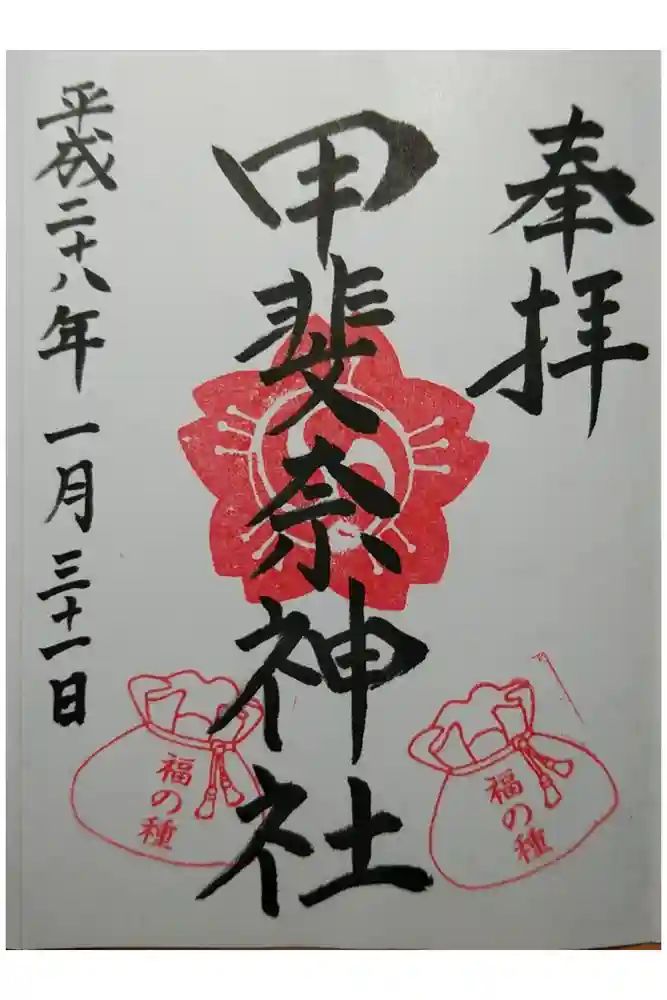 奉拝
甲斐奈神社
平成二十八年一月三十一日
福の種
福の種